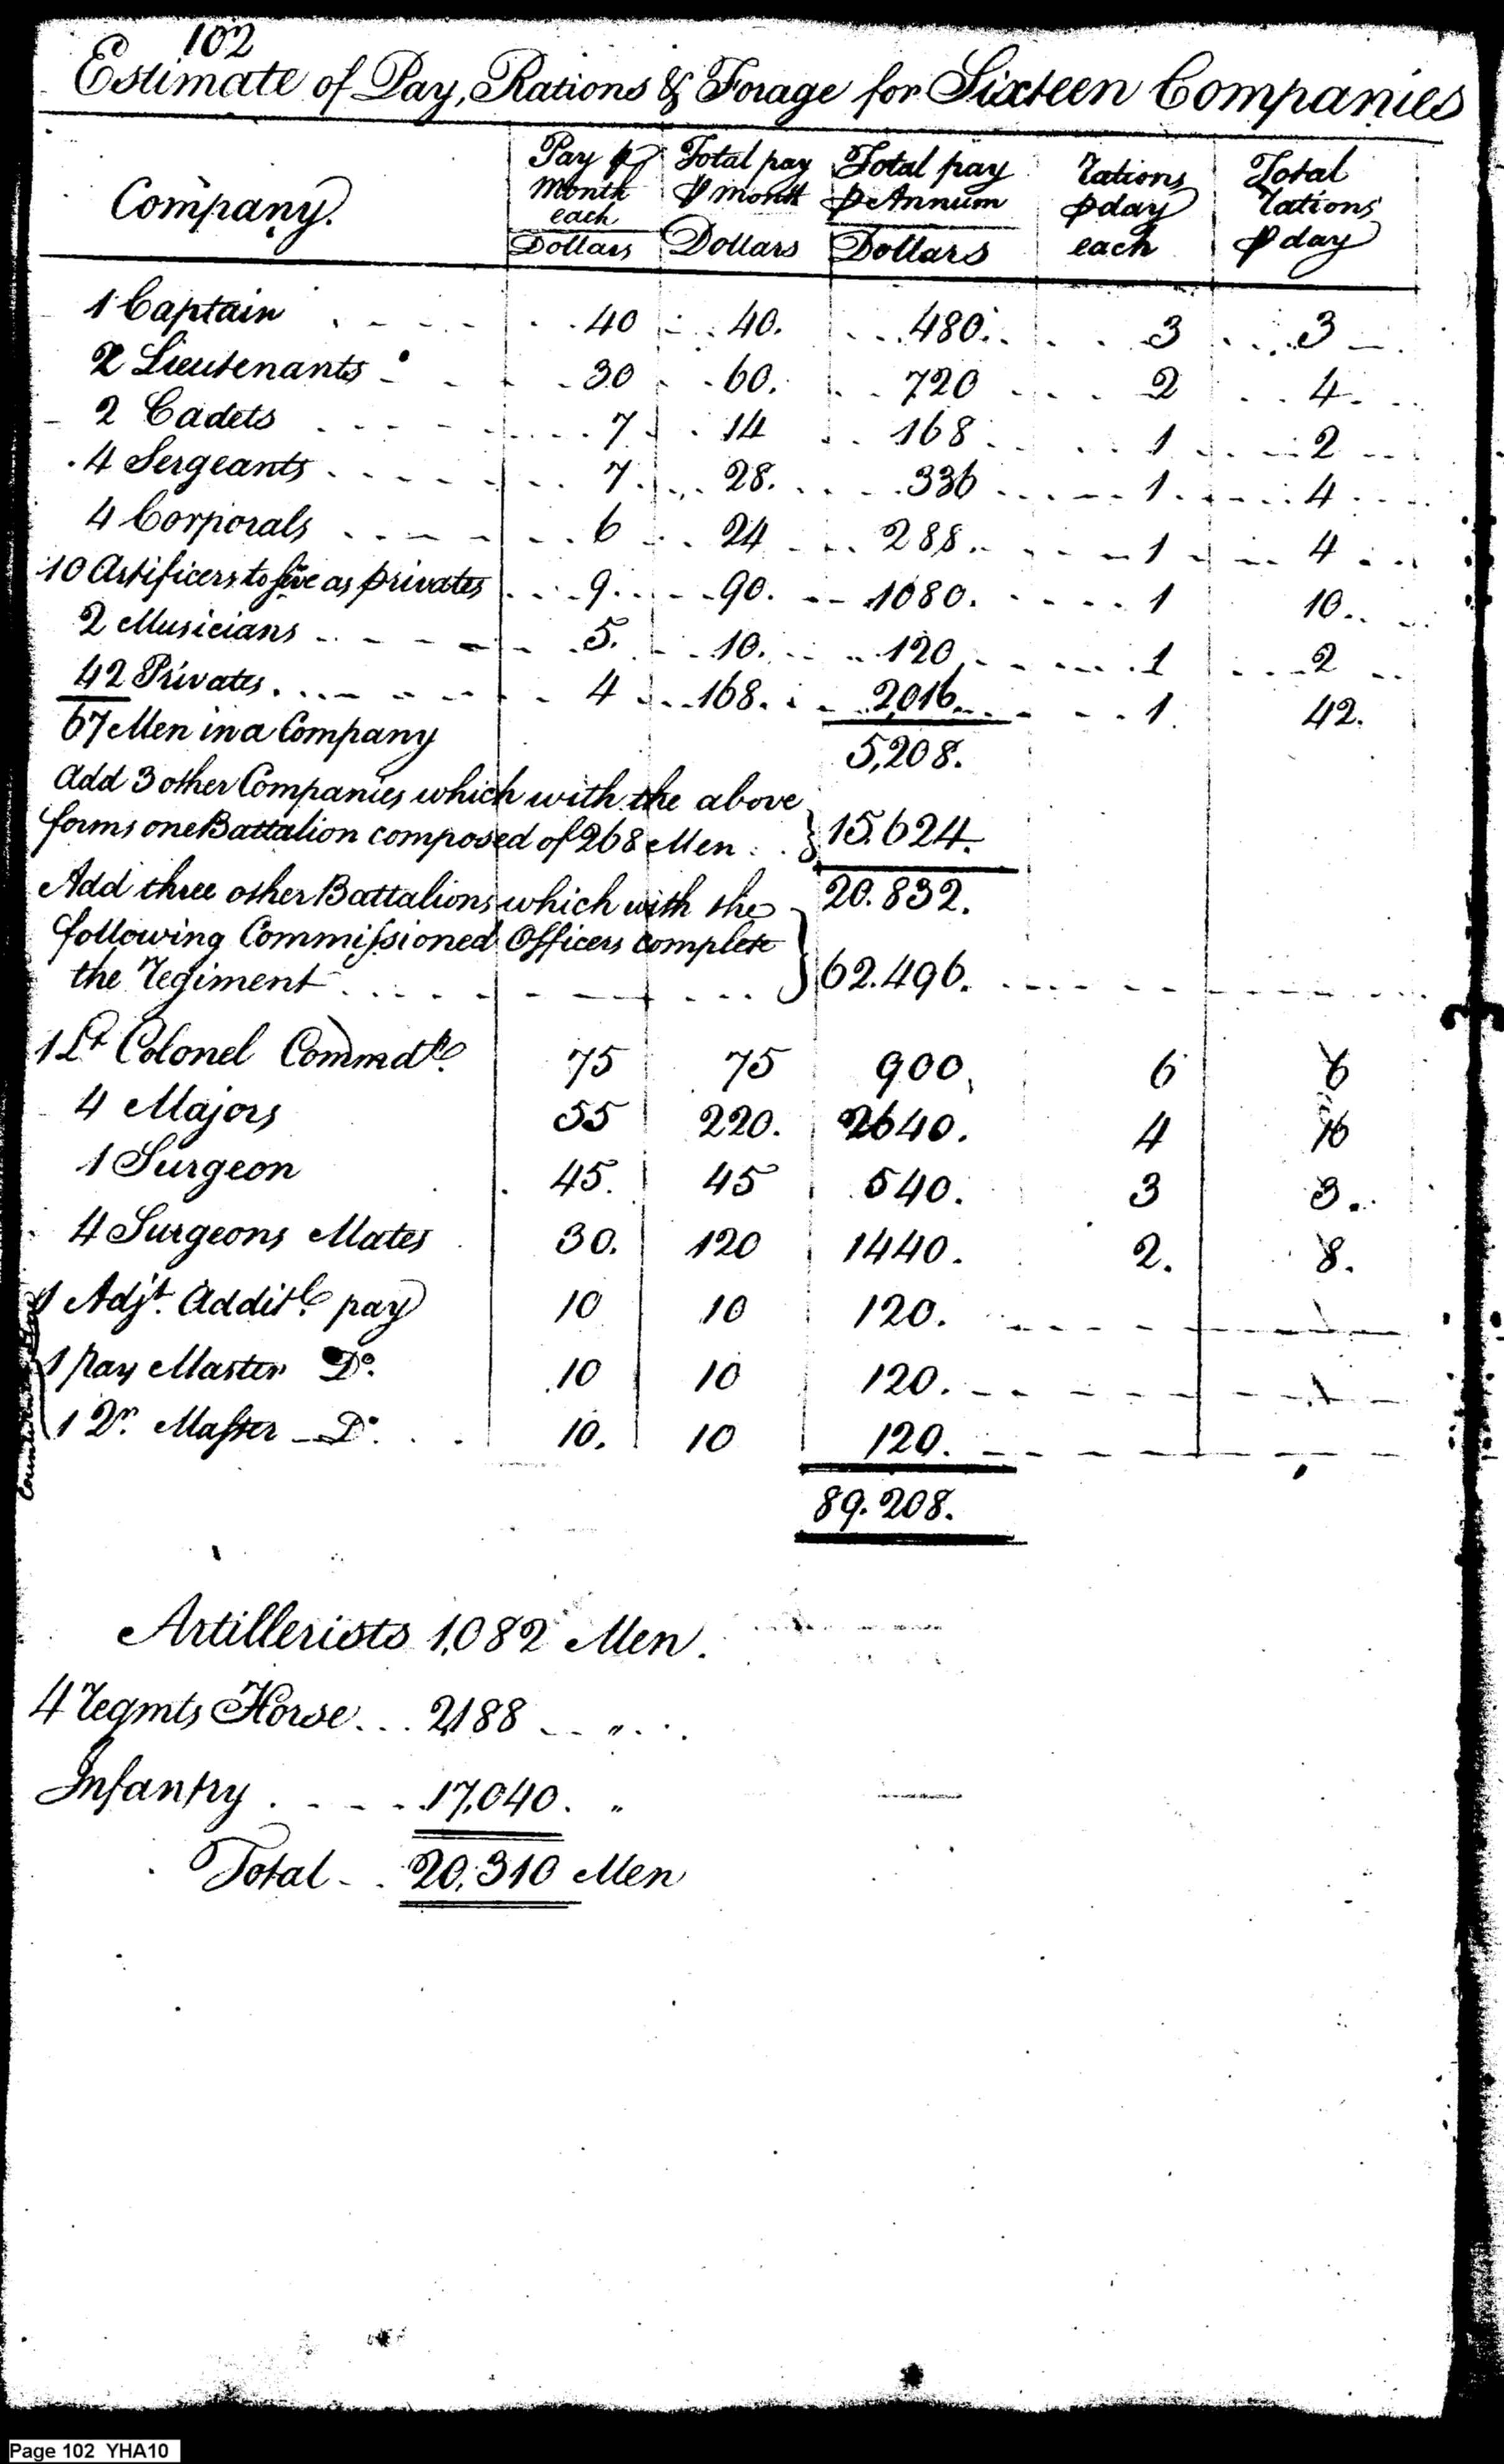 102
Estimate of Pay, Rations & Forage for Sixteen Companies
Company. Pay ⅌ Month each Dollars Total pay ⅌ Month Dollars Total pay ⅌ Annum Dollars rations ⅌ day each Total rations ⅌ day
1 Captain 40 40. 480. 3 3
2 Lieutenants 30 60. 720 2 4.
2 Cadets 7 14 168. 1 2
4 Sergeants 7. 28. 336 1. 4
4 Corporals 6 24 288. 1 4
10 Artificers to serve as privates 9. 90. 1080. 1 10.
2 Musicians 5. 10. 120 1 2
42 Privates. 4 168. 2,016. 1. 42.
67 Men in a Company 5,208.
Add 3 other Companies which with the above
forms one Battalion composed of 268 Men. 15.624.
20.832.
Add three other Battalions which with the
following Commissioned Officers complete
the regiment 62.496.
1 Lt Colonel Commdt. 75 75 900. 6 6
4 Majors 55 220. 2640. 4 16
1 Surgeon 45. 45 540. 3 3.
4 Surgeons Mates 30. 120 1440. 2. 8.
1 Adjt. Additl. pay 10 10 120.
1 Pay Master Do. 10 10 120.
1 Qr. Master Do. 10. 10 120.
89.208.
Artillerists 1,082 Men.
4 regmts Horse... 2,188 "
Infantry 17,040. "
Total 20,310 Men
Page 102 YHA10